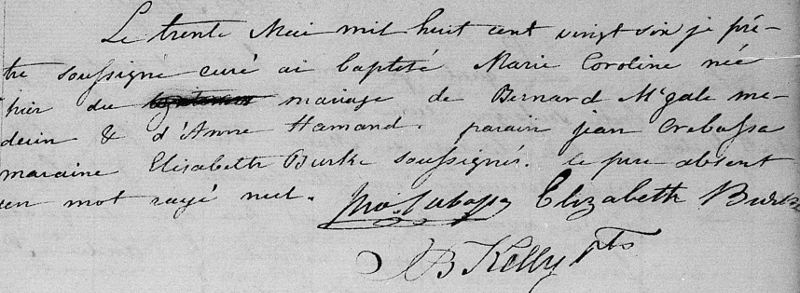 Le trente Mai mil huit cent vingt six je prê-
tre soussigné curé ai baptisé Marie Caroline née
hier du mariage de Bernard McGale me-
decin & d'Anne Hamand. parain jean Crebassa
maraine Elisabeth Burke soussignés. le pere absent
un mot rayé nul. Jno Crebassa Elizabeth Burke
JB Kelly ptre